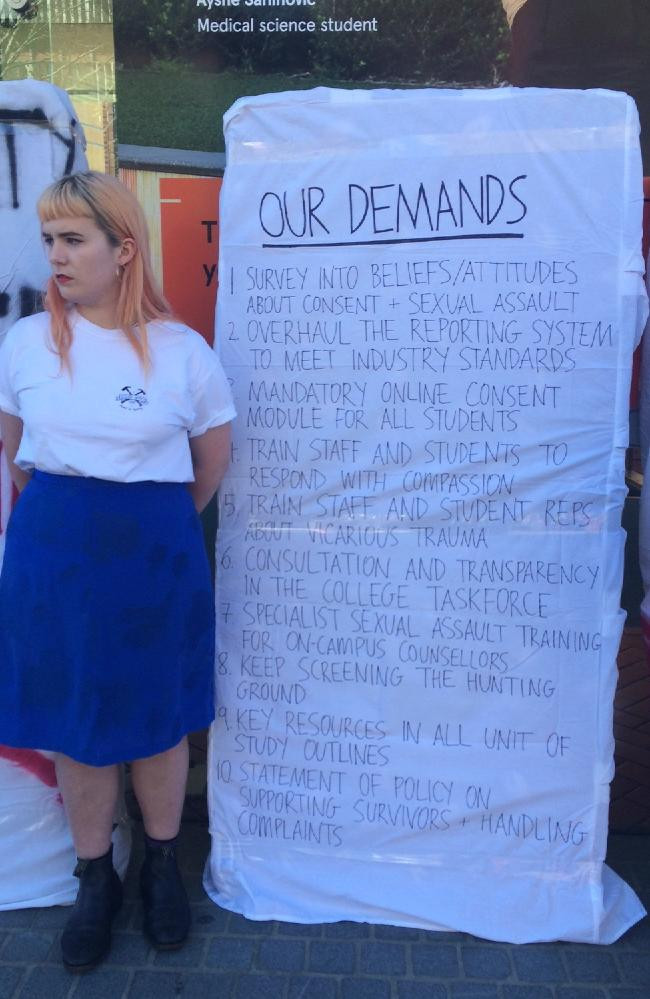 Medical science student
OUR DEMANDS
1 SURVEY INTO BELIEFS/ATTITUDES
ABOUT CONSENT + SEXUAL ASSAULT
2. OVERHAUL THE REPORTING SYSTEM
TO MEET INDUSTRY STANDARDS
MANDATORY ONLINE CONSENT
MODULE FOR ALL STUDENTS
TRAIN STAFF AND STUDENTS TO
RESPOND WITH COMPASSION
5. TRAIN STAFF AND STUDENT REPS
ABOUT VICARIOUS TRAUMA
6. CONSULTATION AND TRANSPARENCY
IN THE COLLEGE TASKFORCE
7. SPECIALIST SEXUAL ASSAULT TRAINING
FOR ON-CAMPUS COUNSELLORS
8. KEEP SCREENING THE HUNTING
GROUND
9. KEY RESOURCES IN ALL UNIT OF
STUDY OUTLINES
10. STATEMENT OF POLICY ON
SUPPORTING SURVIVORS + HANDLING
COMPLAINTS